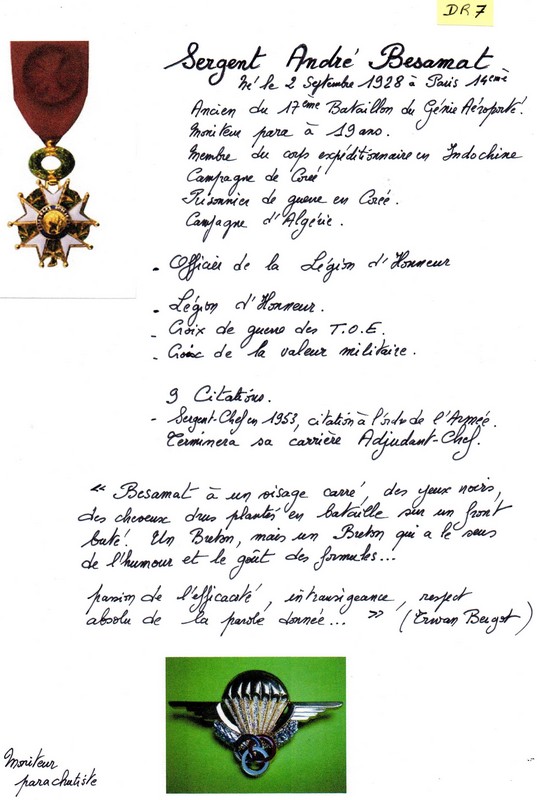 DR7
Sergent André Besamat
Né le 2 Septembre 1928 à Paris 14ème
Ancien du 17ème Bataillon du Génie Aéroporté.
Moniteur para à 19 ans.
Membre du corps expéditionnaire en Indochine
Campagne de Corée
Prisonnier de guerre en Corée.
Campagne d'Algérie.
- Officier de la Légion d'Honneur
- Légion d'Honneur.
- Croix de guerre des T.O.E.
- Croix de la valeur militaire.
9 Citations.
- Sergent-Chef en 1953, citation à l'ordre de l'Armée.
Terminera sa carrière Adjudant-Chef.
" Besamat à un visage carré, des yeux noirs,
des cheveux drus plantés en bataille sur un front
buté. Un Breton, mais un Breton qui a le sens
de l'humour et le goût des formules...
passion de l'efficacité, intransigeance, respect
absolu de la parole donnée... " (Erwan Bergot)
Moniteur
parachutiste